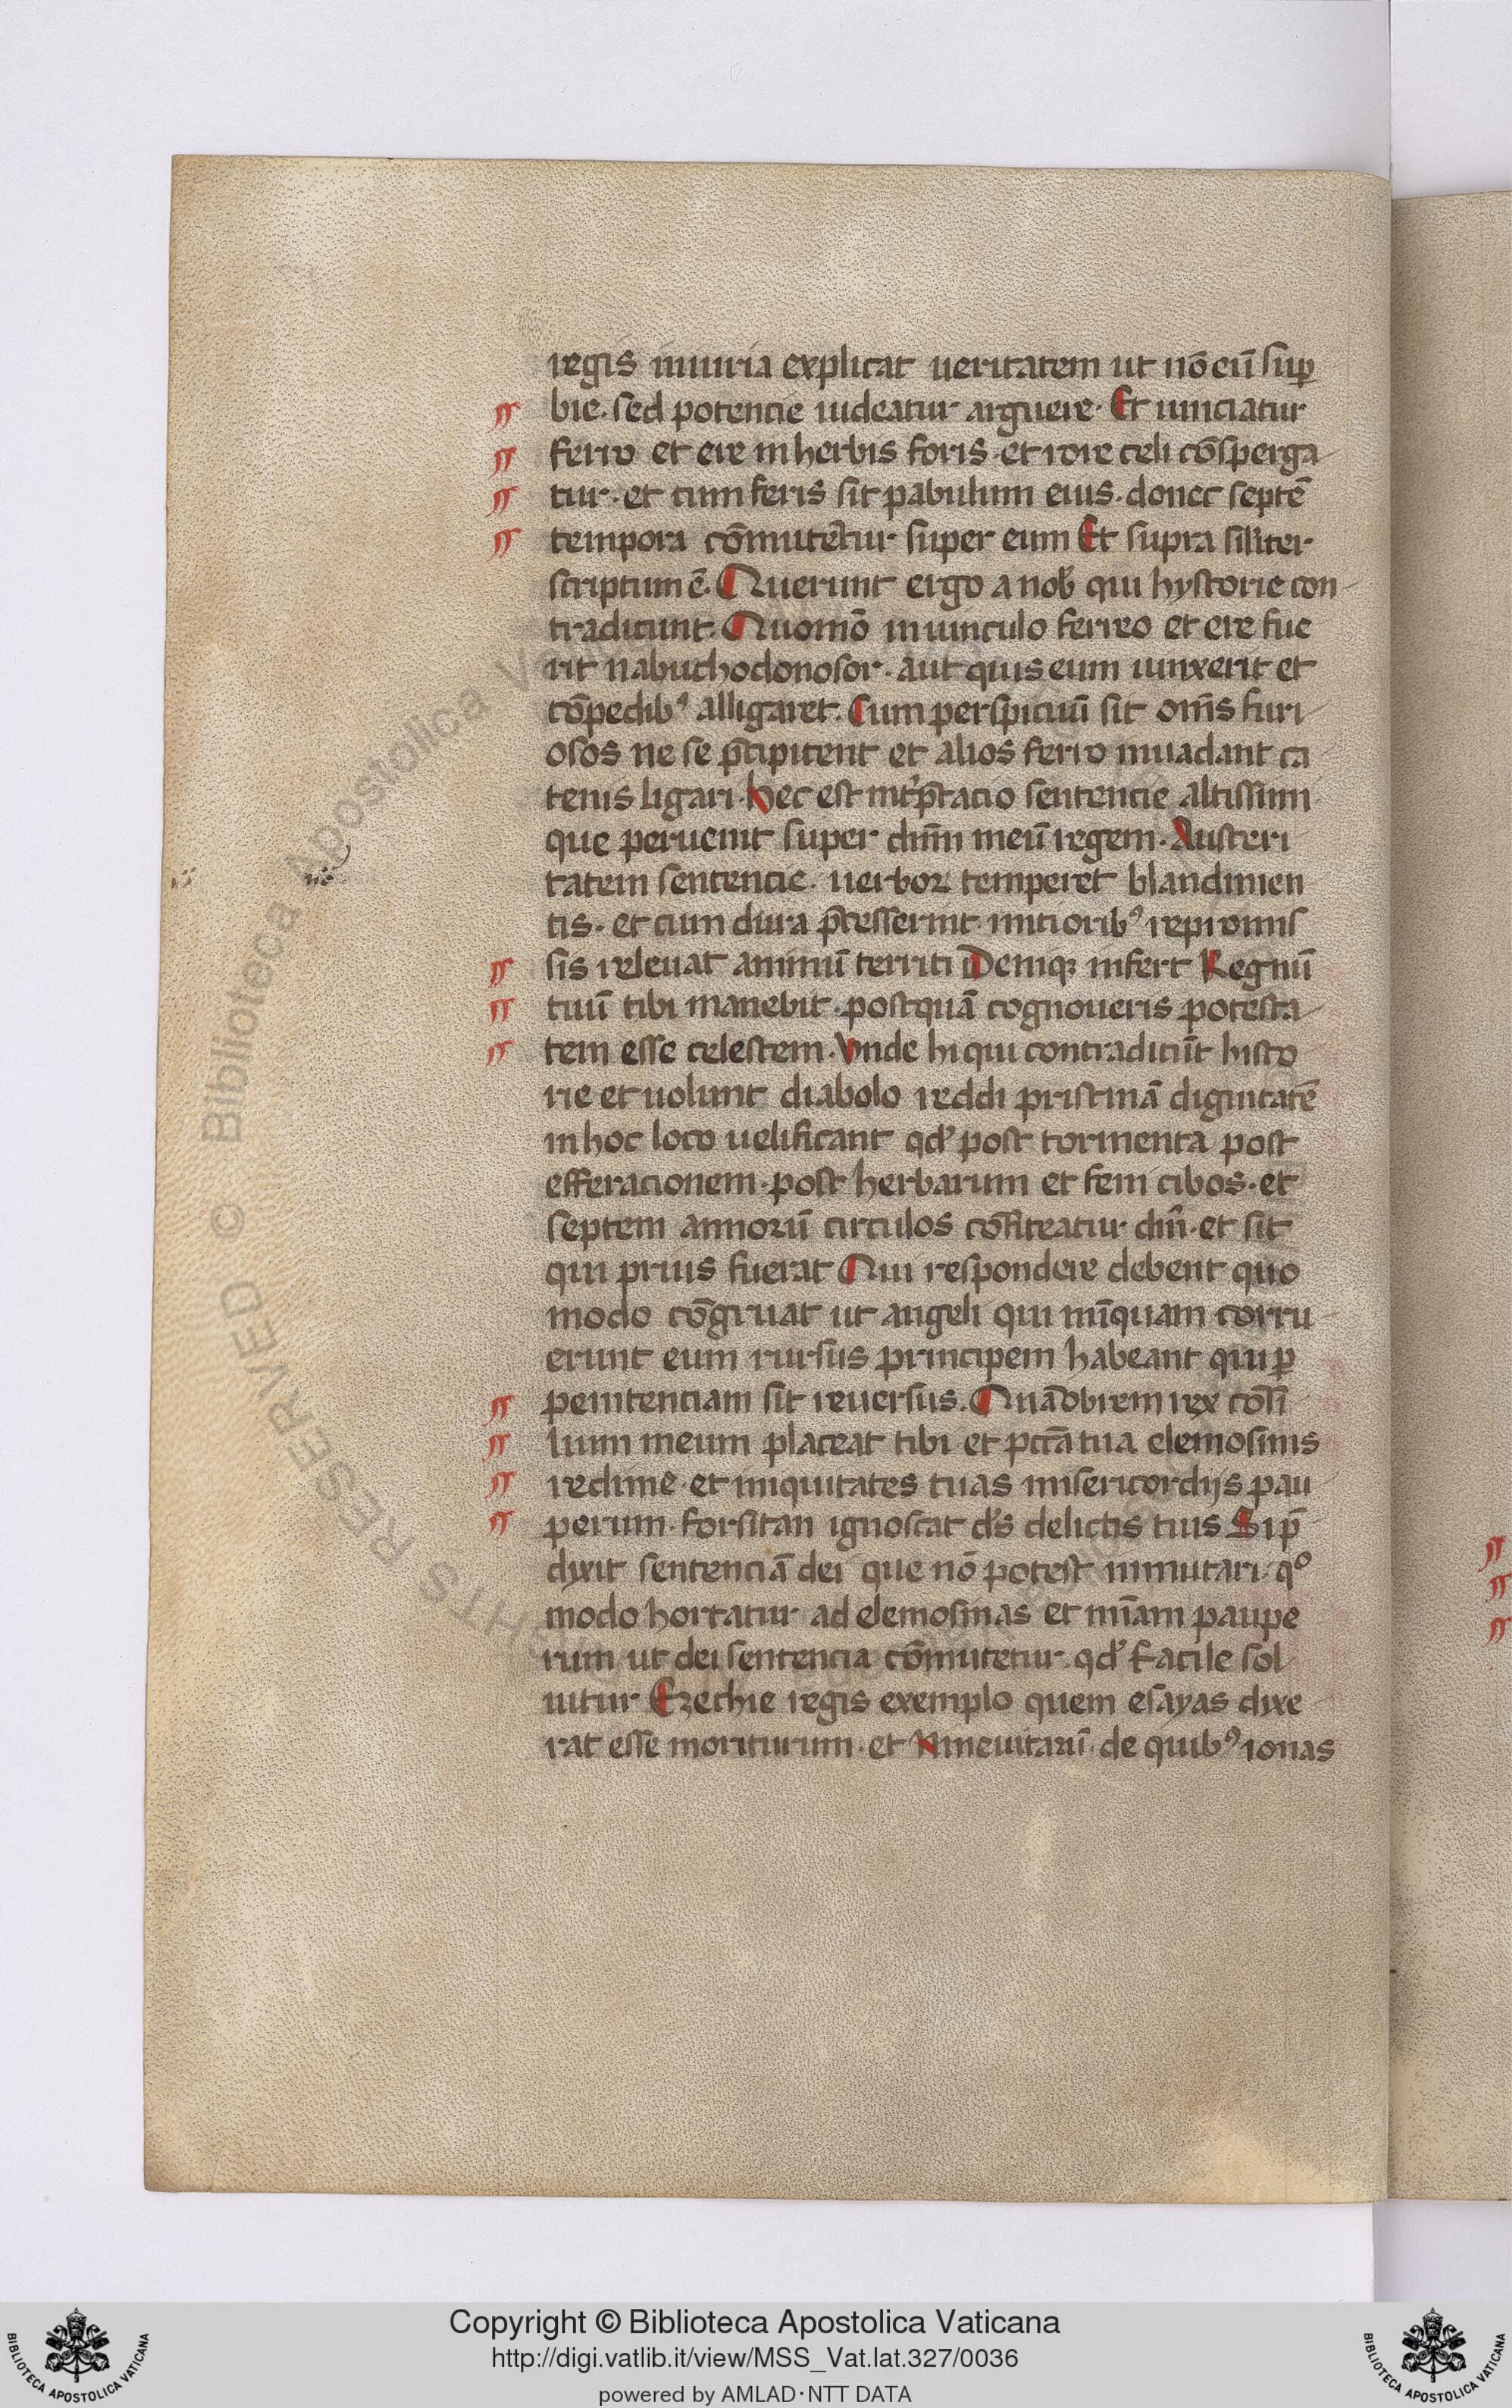 regis iniuria explicat ueritatem ut nō eū suꝑ
bie. sed potencie uideatur arguere. Et uinciatur
ferro et ere in herbis foris. et rore celi cōsperga
tur. et cum feris sit pabulum eius. donec septē
tempora cōmutētur super eum Et supra siliter
scriptum ē. Querunt ergo a nob̄ qui hystorie con
tradicunt. Quomō in uinculo ferreo et ere fue
rit nabuchodonosor. aut quis eum uinxerit et
cōpedibꝰ alligaret. Cum perspicuū sit om̄s furi
osos ne se p̄cipitent et alios ferro inuadant ca
tenis ligari. Hec est int̓p̄tacio sentencie altissimi
que peruenit super dn̄m meū regem. Austeri
tatem sentencie. uerboꝝ temperet blandimen
tis. et cum dura p̄cesserint. mitioribꝰ repromis
sis releuat animū territi Deniqꝫ infert Regnū
tuū tibi manebit. postquā cognoueris potesta
tem esse celestem. Vnde hi qui contradicūt histo
rie et uolunt diabolo reddi pristinā dignitatē
in hoc loco uelificant qd̓ post tormenta post
efferacionem. post herbarum et feni cibos. et
septem annorū circulos cōfiteatur dn̄m. et sit
qui prius fuerat Qui respondere debent quo
modo cōgruat ut angeli qui nūquam corru
erunt eum rursus principem habeant qui ꝑ
penitenciam sit reuersus. Quāobrem rex cōsi
lium meum placeat tibi et pctā tua elemosinis
redime. et iniquitates tuas misericordijs pau
perum. forsitan ignoscat ds̄ delictis tuis Si p̄
dixit sentenciā dei que nō potest inmutari. qͦ
modo hortatur ad elemosinas et mīam paupe
rum ut dei sentencia cōmutetur. qd̓ facile sol
uitur Ezechie regis exemplo quem esayas dixe
rat esse moriturum. et Nineuitarū. de quibꝰ ionas
Copyright © Biblioteca Apostolica Vaticana
http://digi.vatlib.it/view/MSS_Vat.lat.327/0036
powered by AMLAD·NTT DATA